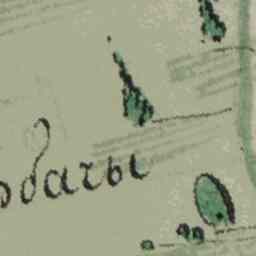 обачы